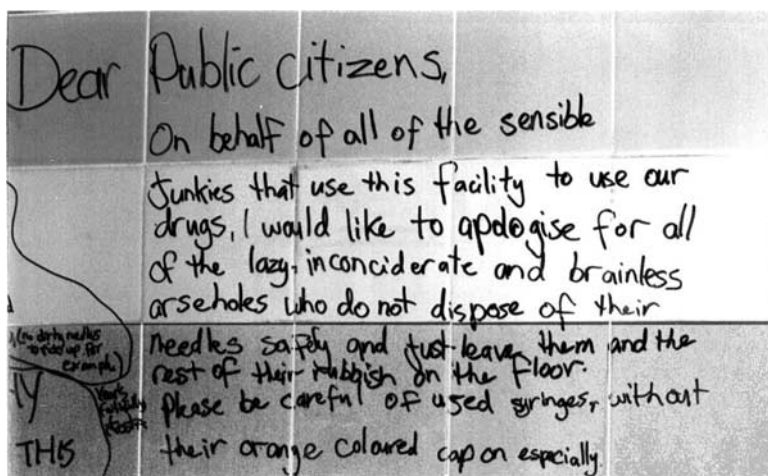 Dear Public Citizens,
On behalf of all of the sensible
junkies that use this facility to use our
drugs, I would like to apologise for all
of the lazy, inconciderate and brainless
arseholes who do not dispose of their
needles safely and just leave them and the
rest of their rubbish on the floor.
Please be careful of used syringes, without
their orange coloured cap on especially.
(no dirty needles
for
example)
THIS